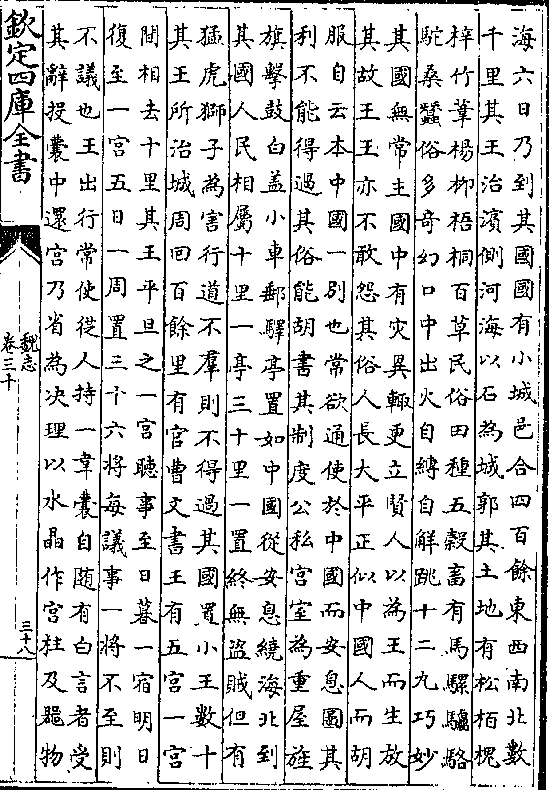 海六日乃到其國國有小城邑合四百餘東西南北數
千里其王治濱側河海以石為城郭其土地有松柏槐
梓竹葦楊柳梧桐百草民俗田種五穀畜有馬騾驢駱
駝桑蠶俗多奇幻口中出火自縛自解跳十二丸巧妙
其國無常主國中有灾異輙更立賢人以為王而生放
其故王王亦不敢怨其俗人長大平正似中國人而胡
服自云本中國一别也常欲通使於中國而安息圖其
利不能得過其俗能胡書其制度公私宫室為重屋旌
旗擊鼓白盖小車郵驛亭置如中國從安息繞海北到
其國人民相屬十里一亭三十里一置終無盗賊但有
猛虎獅子為害行道不羣則不得過其國置小王數十
其王所治城周回百餘里有官曹文書王有五宫一宫
間相去十里其王平旦之一宫聽事至日暮一宿明日
復至一宫五日一周置三十六將每議事一將不至則
不議也王出行常使從人持一韋囊自随有白言者受
其辭投囊中還宫乃省為决理以水晶作宫柱及噐物
欽定四庫全書
魏志
卷三十
三十八